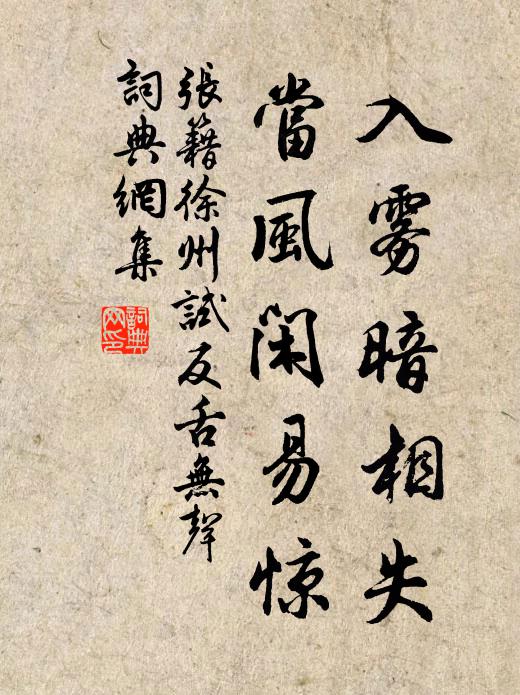 入雾暗相失
當風閑易惊
張籍徐州試反舌無聲
詞典網集
詞典網印